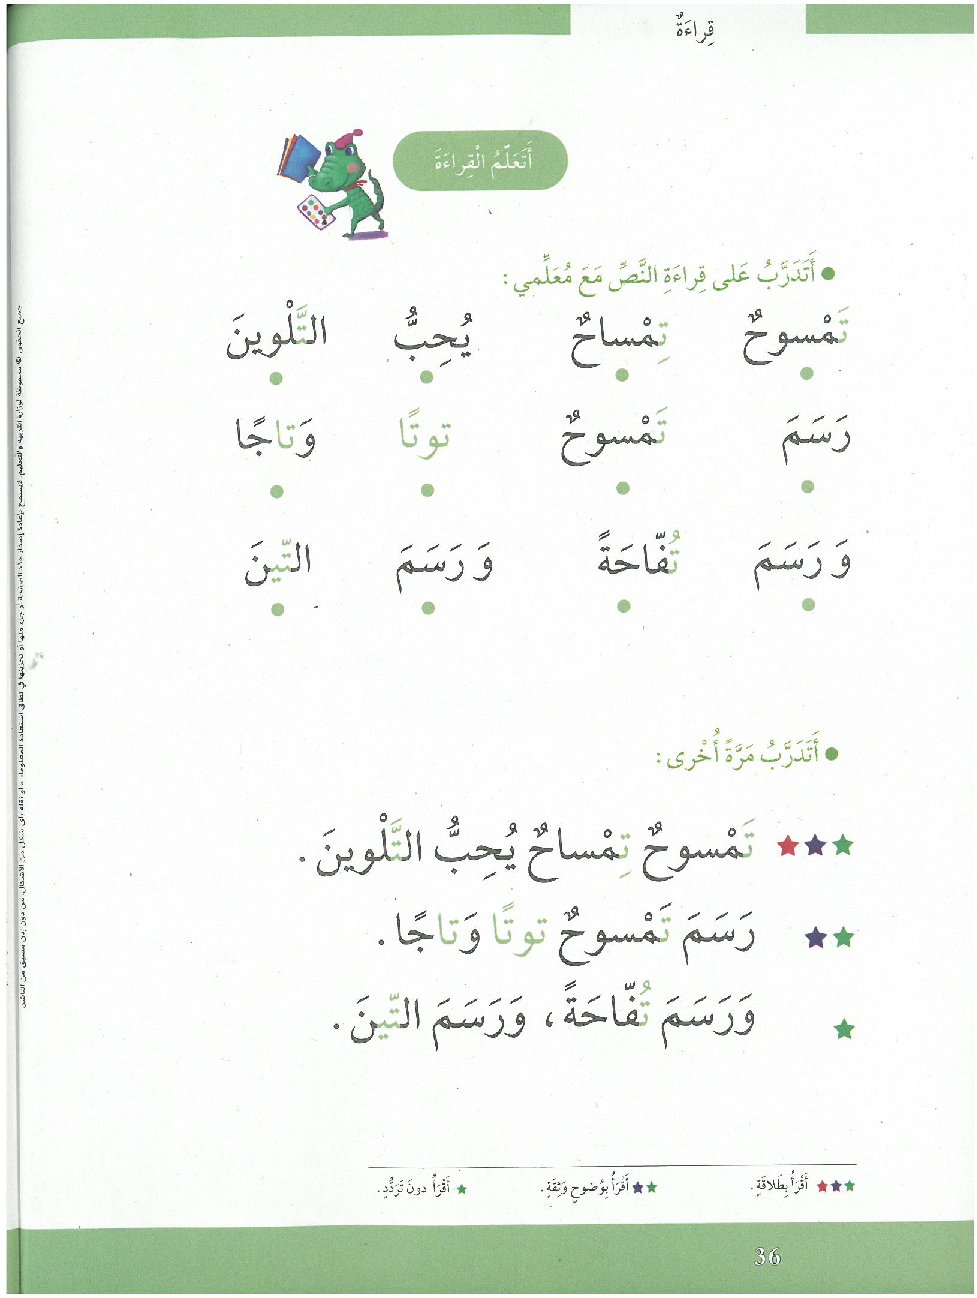 قِراءَةٌ
أَتَعَلَّمُ الْقِراءَةَ
● أَتَدَرَّبُ عَلى قِراءَةِ النَّصِّ مَعَ مُعَلِّمي :
تَمْسوحٌ تِمْساحٌ يُحِبُّ التَّلْوينَ
رَسَمَ تَمْسوحٌ توتًا وَتاجًا
وَ رَسَمَ تُفّاحَةً وَ رَسَمَ التّينَ
● أَتَدَرَّبُ مَرَّةً أُخْرى :
تَمْسوحٌ تِمْساحٌ يُحِبُّ التَّلْوينَ .
رَسَمَ تَمْسوحٌ توتًا وَتاجًا .
وَرَسَمَ تُفّاحَةً، وَرَسَمَ التّينَ .
أَقْرَأُ بِطَلاقَةٍ. أَقْرَأُ بِوُضوحٍ وَثِقَةٍ. أَقْرَأُ دونَ تَرَدُّدٍ.
36